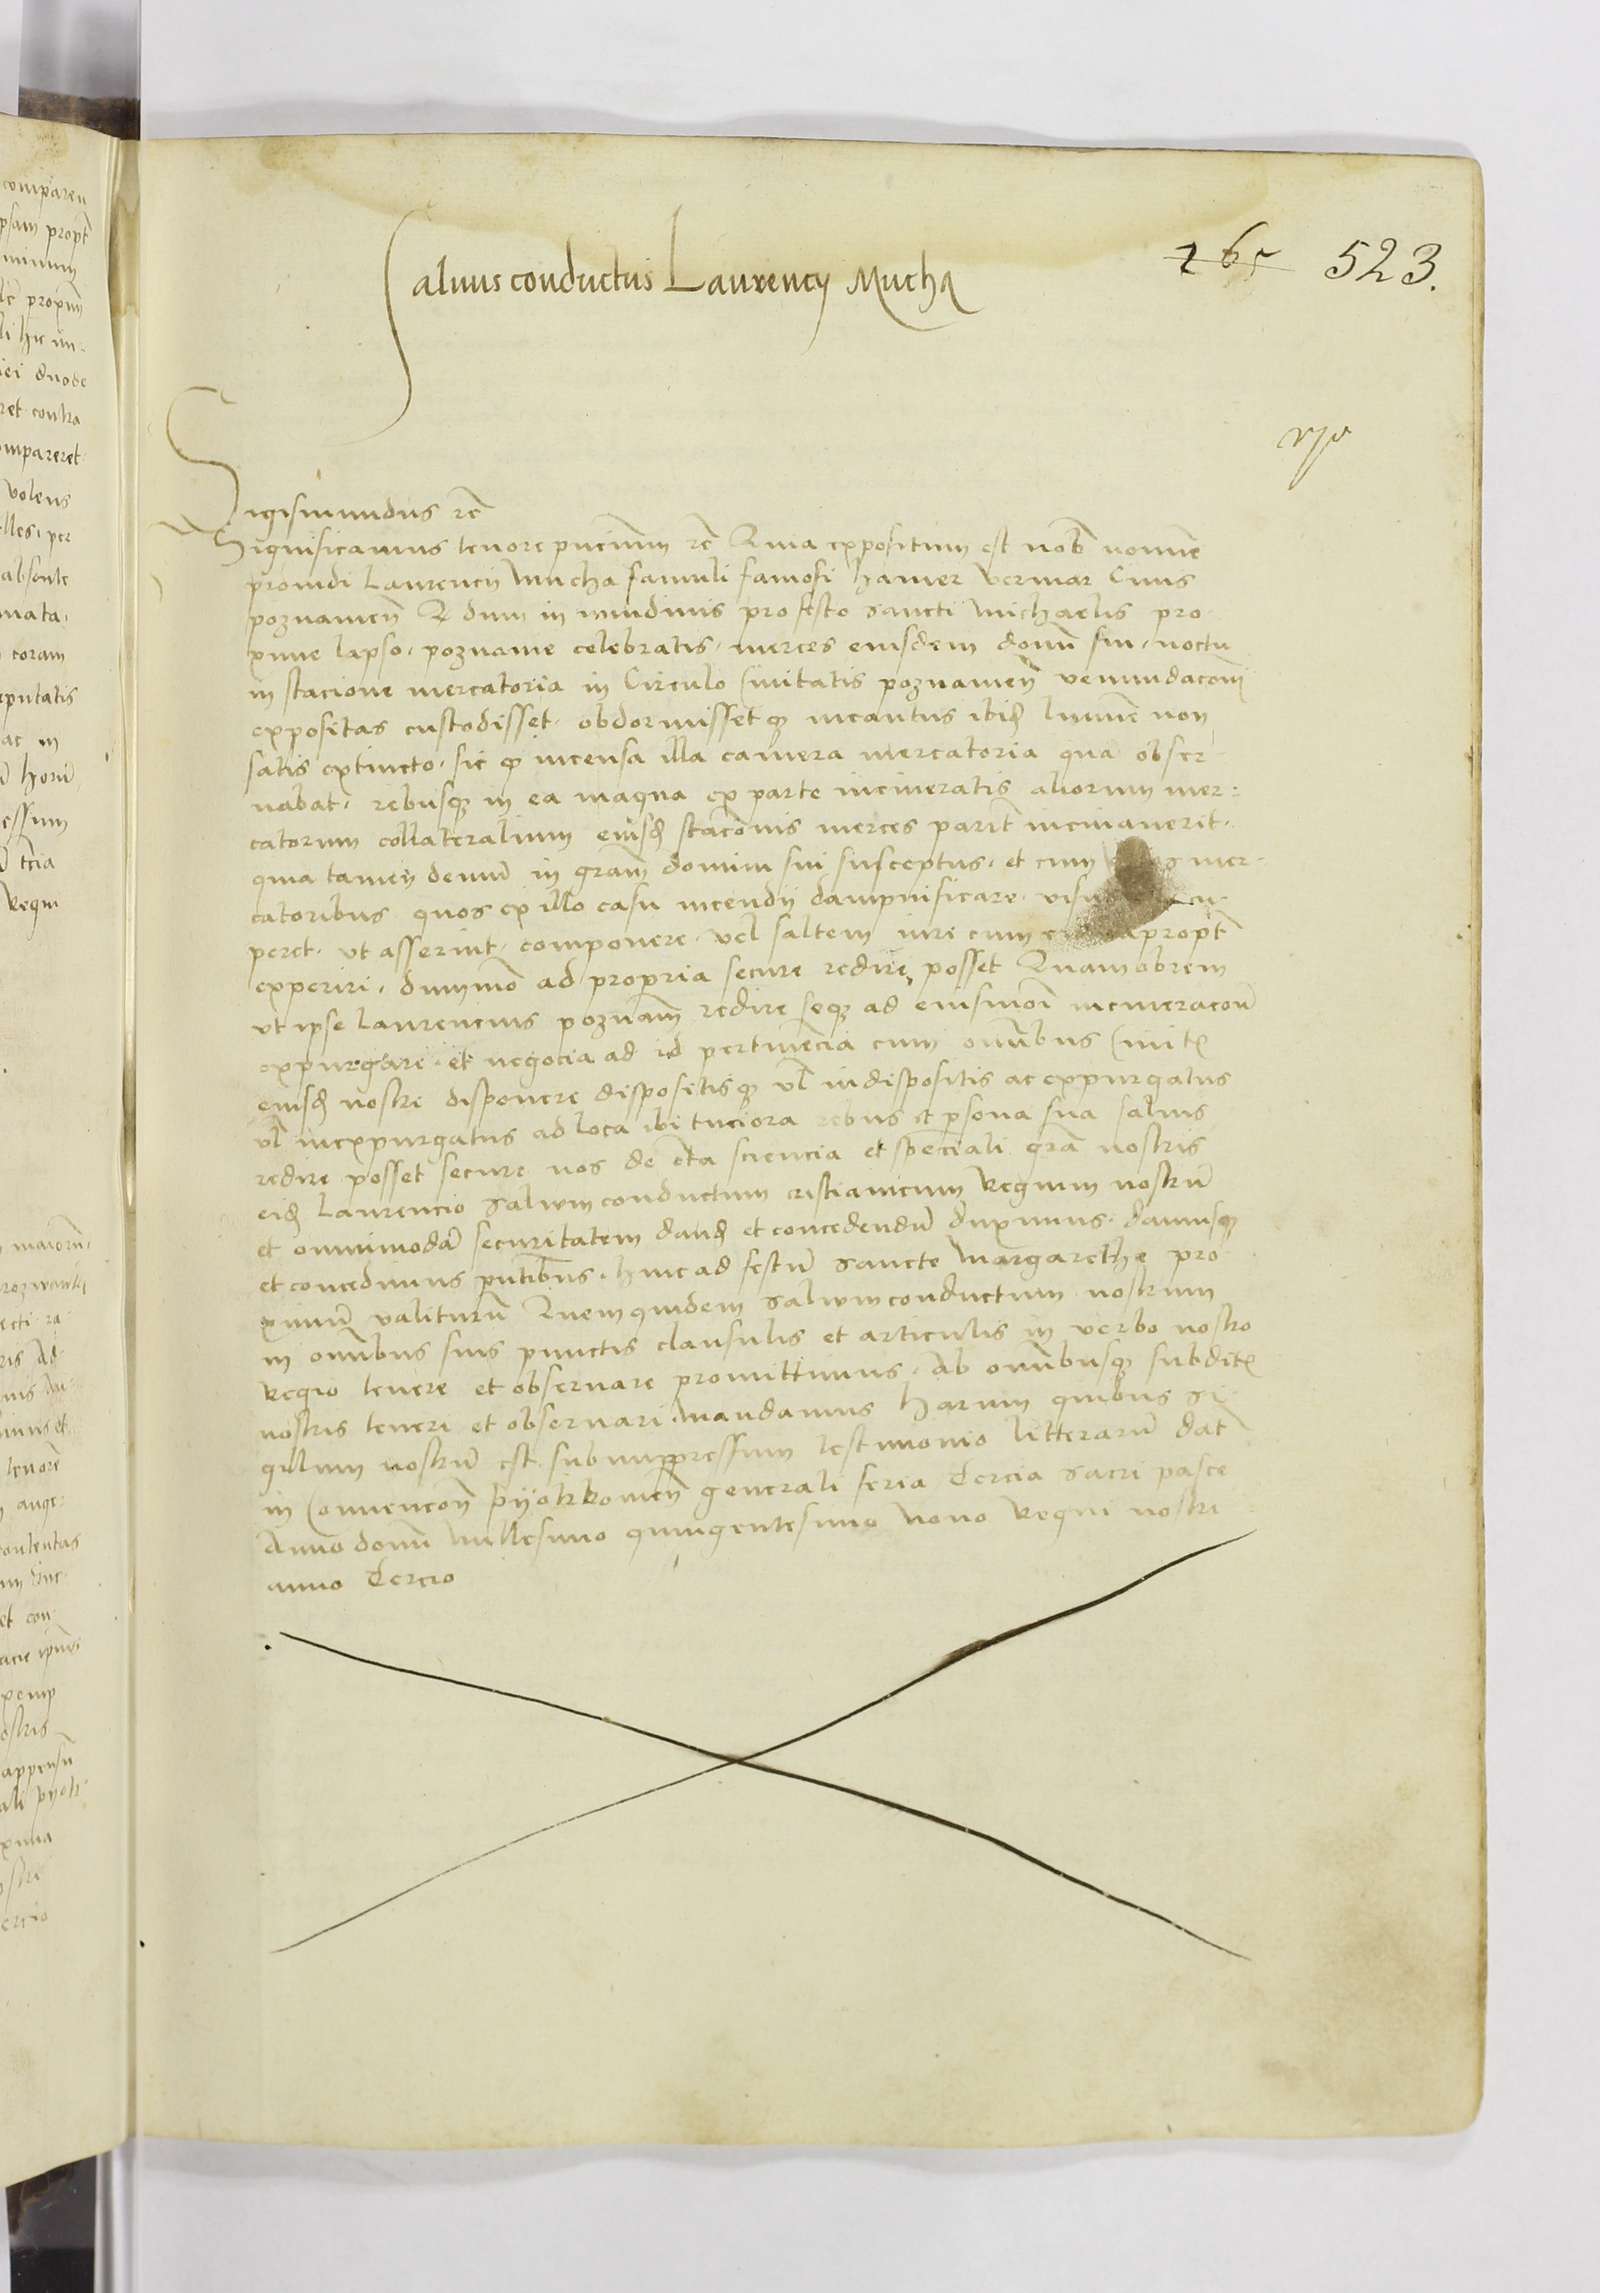 Salvus conductus Laurencij Mucha
265 523.
Sigismundus rc̃
Significamus tenore pñcium rc̃ Quia expositum est nobis nomine
prouidi Laurencij Mucha famuli famosi Hamer Vermar Ciuis
poznamen̄ Q dum in nundinis pro festo sancti Michaelis pro
xime lapso. poznanie celebratis. merces eiusdem domī sui. noctu
in stacione mercatoria in Circulo Ciuitatis poznamen̄ venundacōni
expositas custodisset. obdormissetqȝ incautus ibidȝ lumīe non
satis extincto. sic qȝ incensa illa camera mercatoria quā obser
uabat. rebusqȝ in ea magna ex parte incineratis aliorum mer-
catorum collateralium eiusdȝ stacōnis merces parit̄ incinauerit.
quia tamen demū in grām domini sui susceptus. et cum mer-
catoribus quos ex illo casu incendij dampnificare.
peret. ut asserint. componere. vel saltem iure cum propt̄
experiri. dummō ad propria secure redire posset Quamobrem
vt ipse Laurencius poznam̄ redire seqȝ ad eiusmōi incineracōnē
expurgare. et negocia ad id pertinēcia cum omībus Ciuitꝭ
eiusdȝ nostre disponere dispositisqȝ vl̄ indispositis ac expurgatus
vl̄ inexpurgatus ad loca ibi tuciora rebus et p̱sona sua saluis
redire posset secure nos de cẽta sciencia et speciali grā nostris
eidȝ Laurencio saluumconductum cristianicum Regium nostrū
et omnimodā securitatem dandȝ et concedendū duximus. damusqȝ
et concedimus pñtibus. hinc ad festū sancte Margarethe pro
ximū valiturū Quemquidem saluumconductum nostrum
in omībus suis punctis clausulis et articulis in verbo nostro
Regio tenere et obseruare promittimus. Ab omībusqȝ subditꝭ
nostris teneri et obseruari mandamus Harum quibus si-
gillum nostrū est subimpressum testimonio litterarū Dat̄
in Conuencōn̄ Pyotrkowien̄ generali feria tercia sacri pasce
Anno domī Millesimo quingentesimo Nono Regni nostri
anno tercio